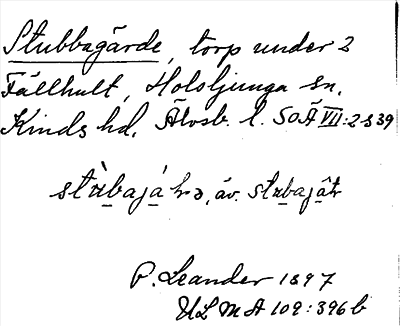 Stubbagärde, torp under 2
Fällhult, Holsljunga sn.
Kinds hd. Älvsb. l. SOÄ VII:2 s 39
stùbajáhə, äv. stubajâtr
P. Leander 1897
ULMA 109:396 b